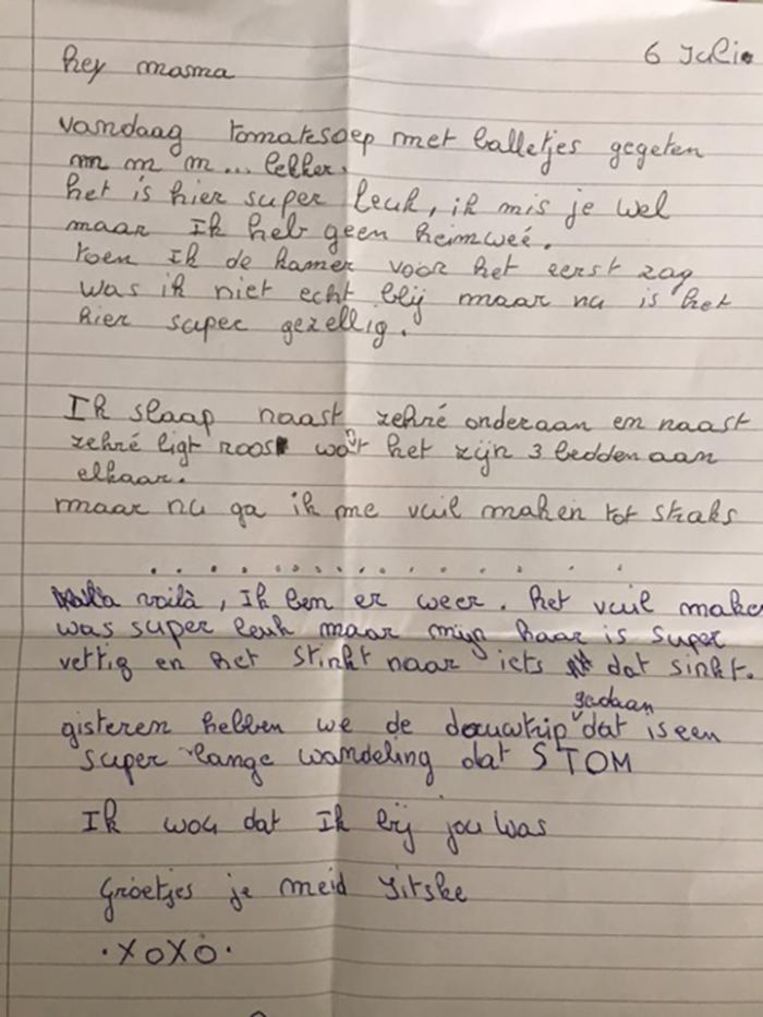 6 Juli
hey mama
vandaag tomatesoep met balletjes gegeten
m m m m... lekker.
het is hier super leuk, ik mis je wel
maar Ik heb geen heimweé.
toen Ik de kamer voor het eerst zag
was ik niet echt blij maar nu is het
hier super gezellig.
Ik slaap naast zehré onderaan en naast
zehré ligt roos want het zijn 3 bedden aan
elkaar.
maar nu ga ik me vuil maken tot straks
. . . . . . . . . . . . . . .
voilà, Ik ben er weer. het vuil make
was super leuk maar mijn haar is super
vettig en het stinkt naar iets dat sinkt.
gisteren hebben we de dauwtrip gedaan dat is een
super lange wandeling dat STOM
Ik wou dat Ik bij jou was
Groetjes je meid Jitske
·XOXO·